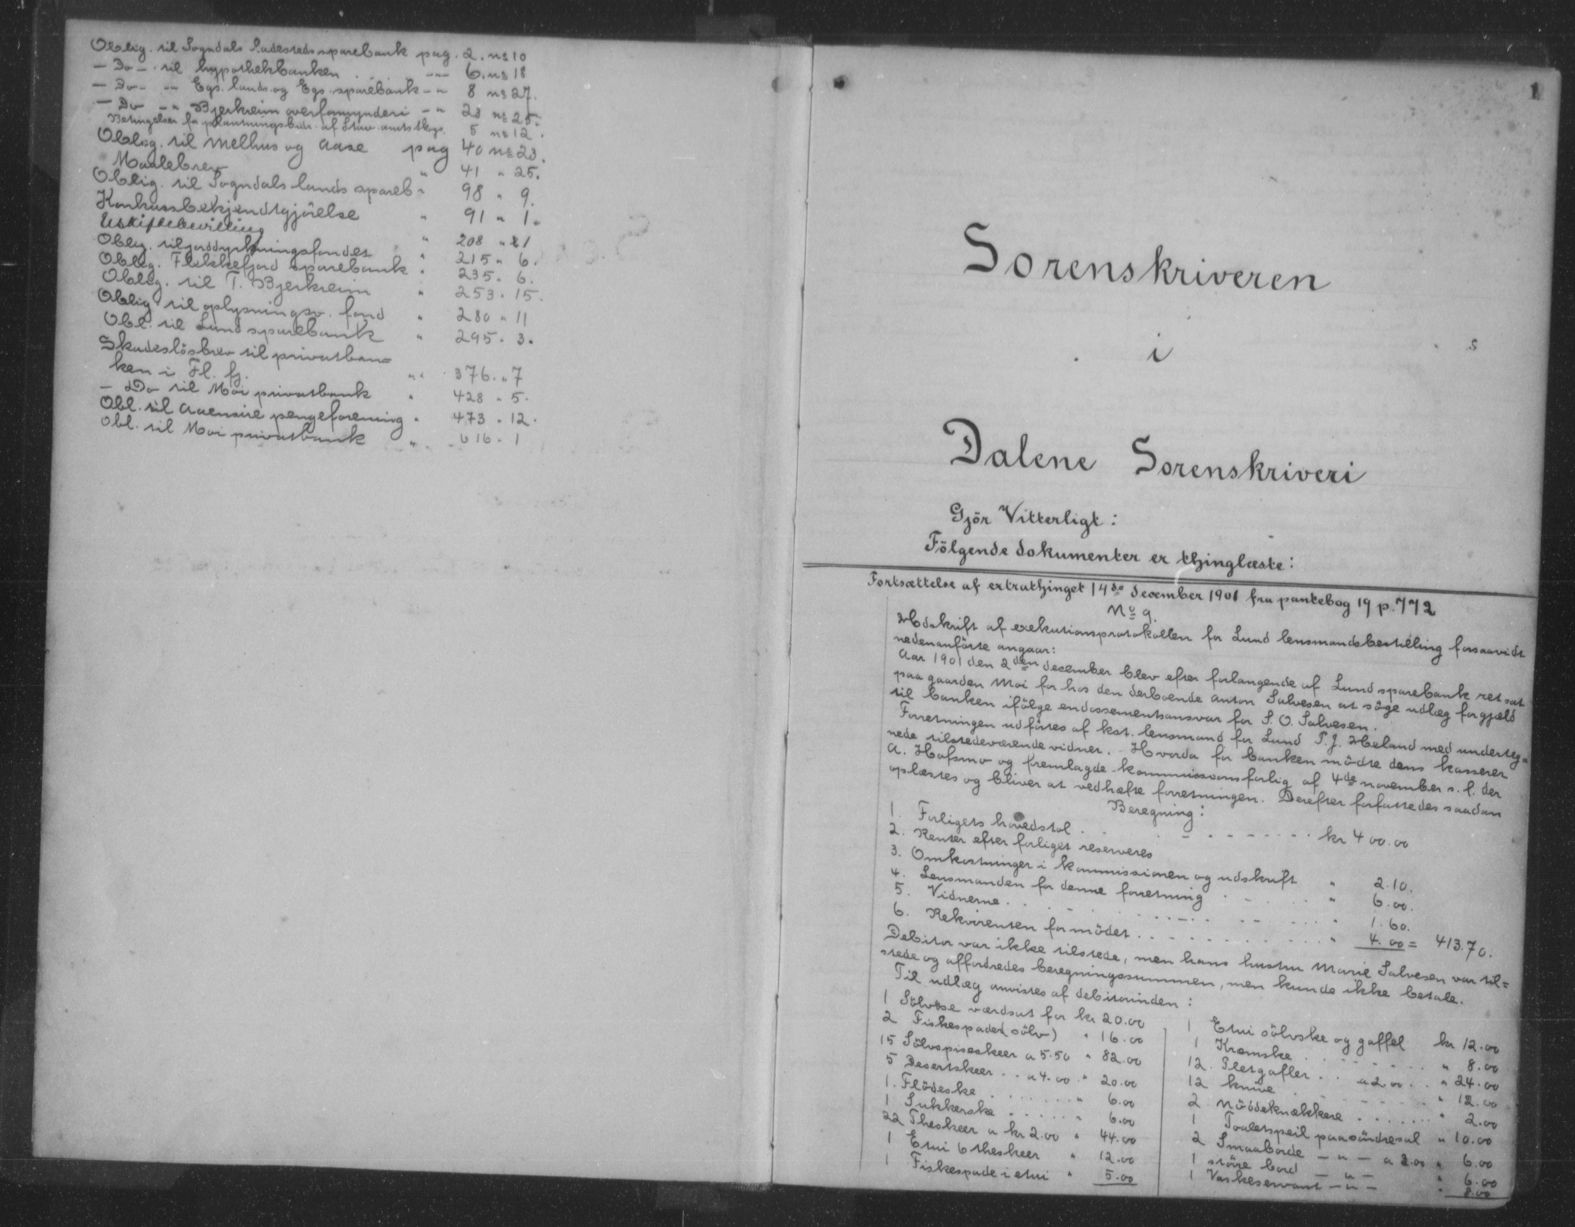 Oblig. til Sogndals ladesteds sparebank pag. 2. no 10
— Do — til hypothekbanken . . — 6. no 18
— Do — " Egs. lands og Egs. sparebank - " 8 no 27.
— Do — " Bjerkreim overformynderi - " 28 no 25.
Betingelser for plantningsbidr. af Stav. amts skogs. 5 no 12.
Oblig. til Melhus og Aase pag 40 no 23.
Maalebrev " 41 " 25.
Oblig. til Sogndals lands spareb. " 98 " 9.
Konkursbekjendtgjörelse " 91 " 1.
Uskiftebevilling " 208 " 21
Oblig. til jorddyrkningsfondet " 215 " 6.
Oblig. Flekkefjord sparebank . 235. 6.
Oblig. til T. Bjerkreim " 253. 15.
Oblig til oplysningsv. fond " 280 " 11
Obl. til Lund sparebank " 295. 3.
Skadeslösbrev til privatban=
ken i Fl. fj. " 376. " 7
— Do til Moi privatbank " 428 " 5.
Obl. til Aaensire pengeforening " 473 " 12.
Obl. til Moi privatbank " 616. 1
1
Sorenskriveren
i
Dalene Sorenskriveri
Gjör Vitterligt:
Fölgende dokumenter er thinglæste:
Fortsættelse af extrathinget 14de december 1901 fra pantebog 19 p. 772
No 9.
Udskrift af exekutionsprotokollen for Lund lensmandsbestilling forsaavidt
nedenanförte angaar:
Aar 1901 den 2den december blev efter forlangende af Lund sparebank ret sat
paa gaarden Moi for hos den derboende Anton Salvesen at söge udlæg for gjæld
til banken ifölge endossementsansvar for S. O. Salvesen.
Forretningen udförtes af kst. lensmand for Lund P. J. Heland med underteg=
nede tilstedeværende vidner. — Hvorda for banken mödte dens kasserer
A. Hafsmo og fremlagde kommissionsforlig af 4de november s. l. der
oplæstes og bliver at vedhæfte forretningen. Derefter forfattedes saadan
Beregning:
1. Forligets hovedstol . . . . . . . . kr 400.00
2. Renter efter forliget reserveres
3. Omkostninger i kommissionen og udskrift " 2.10.
4. Lensmanden for denne forretning . . . . " 6.00.
5. Vidnerne . . . . . . . . . . . " 1.60.
6. Rekvirenten for mödet . . . . . . . . " 4.00 = 413.70.
Debitor var ikke tilstede, men hans hustru Marie Salvesen var til=
stede og affordredes beregningssummen, men kunde ikke betale.
Til udlæg anvistes af debitorinden:
1 Sölvöse værdsat for kr 20.00
2 Fiskespader (sölv) " 16.00
15 Sölvspiseskeer a 5.50 " 82.00
5 Desertskeer . . a 4.00 " 20.00
1. Flödeske . . . . . . " 6.00
1 Sukkerske . . . . . " 6.00
22 Theskeer a kr 2.00 " 44.00
1 Etui 6 theskeer " 12.00
1 Fiskespade i etui " 5.00
1 Etui sölvske og gaffel kr 12.00
1 Kræmske . . . . . . " 8.00
12. Pletgafler . . a 2.00 . . " 24.00
12 knive . . . . . . . . " 12.00
2 Nöddeknækkere . . . . . . " 2.00
1 Toaletspeil paa söndresal " 10.00
2 Smaaborde — " — a 3.00 " 6.00
1 större bord — " — " 6.00
1 Vaskeservant — " — " 8.00